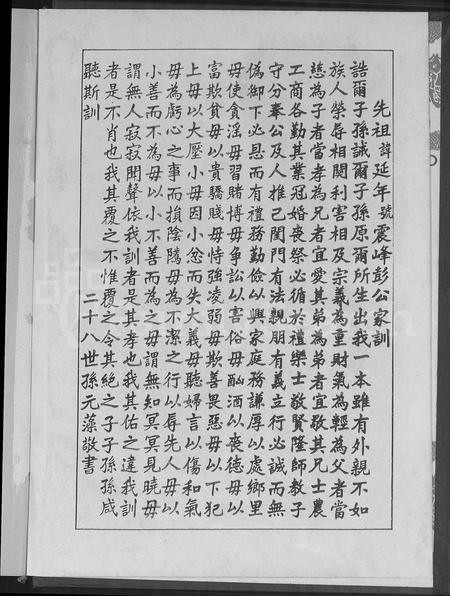 先祖諱延年號震峰彭公家訓
誥爾子孫誡爾子孫原爾所生出我一本雖有外親不如
族人榮辱相關利害相及宗義為重財氣為輕為父者當
慈為子者當孝為兄者宜愛其弟為弟者宜敬其兄士農
工商各勤其業冠婚喪祭必循於禮樂士敬賢隆師教子
守分奉公及人推己閨門有法親朋有義立行必誠而無
偽御下必恩而有禮務勤儉以興家庭務謙厚以處鄉里
毋使貪淫毋習賭博毋爭訟以害俗毋酗酒以喪德毋以
富欺貧毋以貴驕賤毋恃強凌弱毋欺善畏惡毋以下犯
上毋以大壓小毋因小忿而失大義毋聽婦言以傷和氣
毋為虧心之事而損陰隲毋為不潔之行以辱先人毋以
小善而不為毋以小不善而為之毋謂無知冥冥見曉毋
謂無人寂寂聞聲依我訓者是其孝也我其佑之違我訓
者是不肖也我其覆之不惟覆之令其絕之子子孫孫咸
聽斯訓
二十八世孫元藻敬書